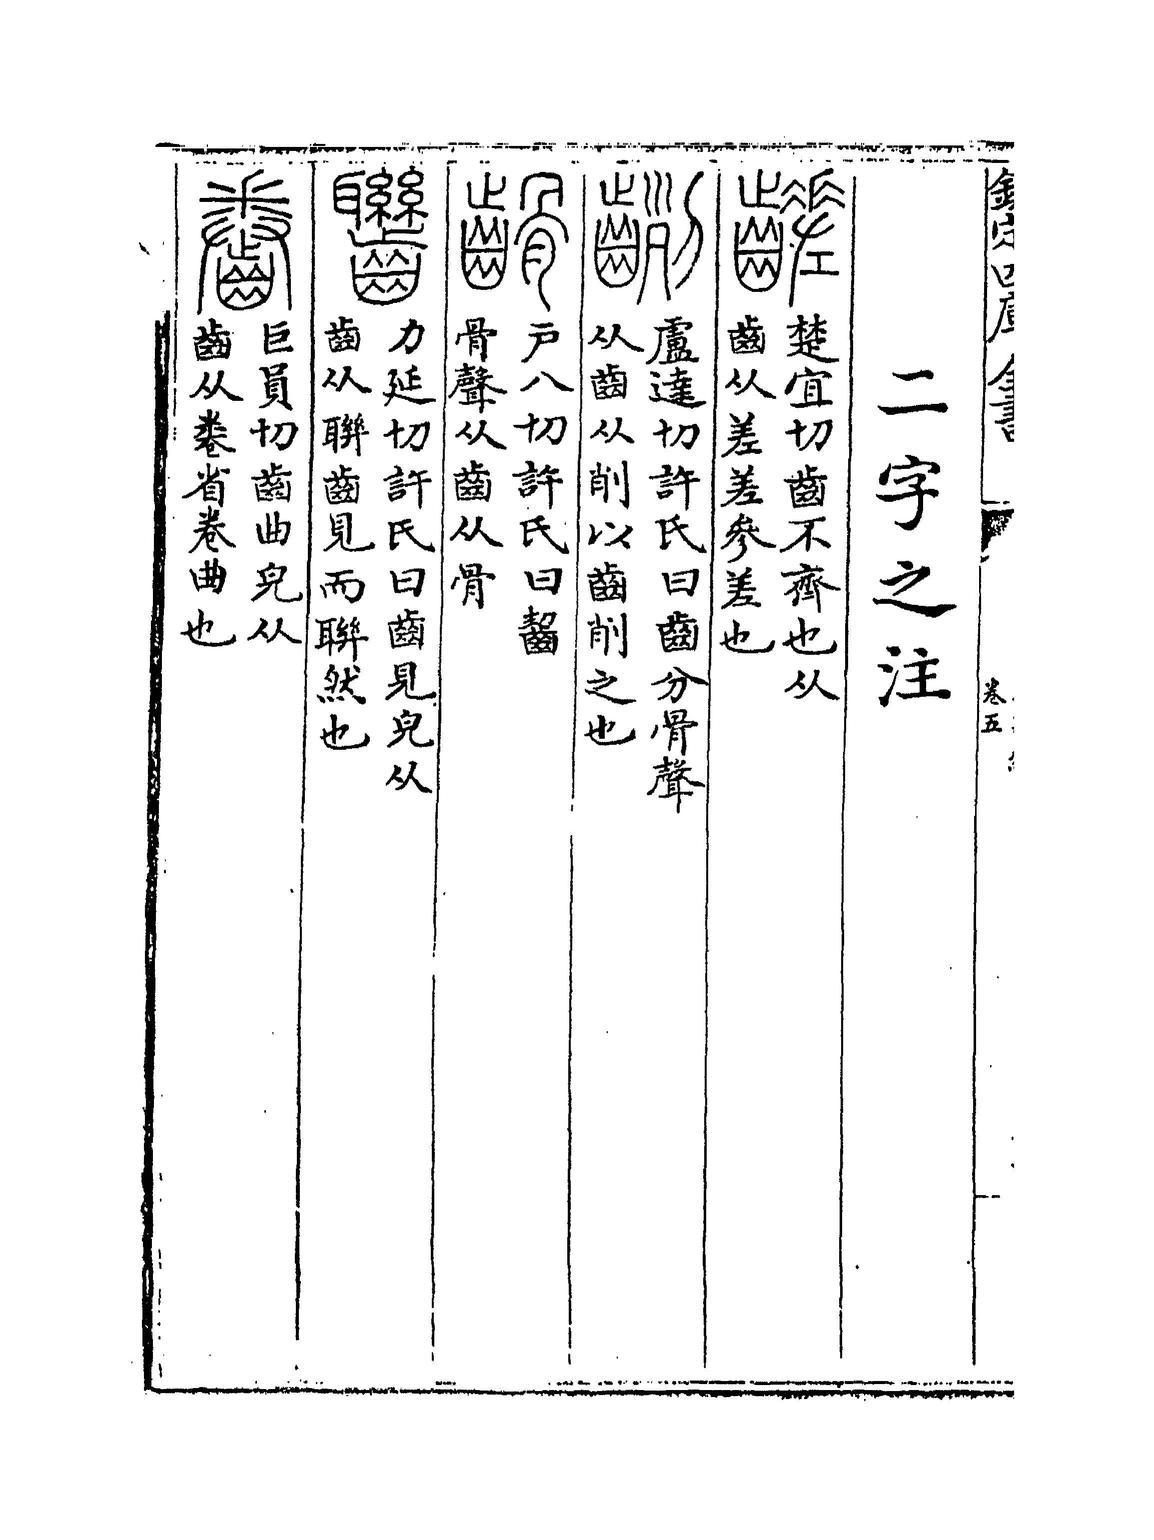 欽定四庫全書
卷五
二字之注
齹
楚宜切齒不齊也从
齒从差差參差也
盧達切許氏曰齒分骨聲
从齒从削以齒削之也
䶝
戸八切許氏曰齧
骨聲从齒从骨
力延切許氏曰齒見皃从
齒从聮齒見而聮然也
齤
巨員切齒曲皃从
齒从卷省卷曲也